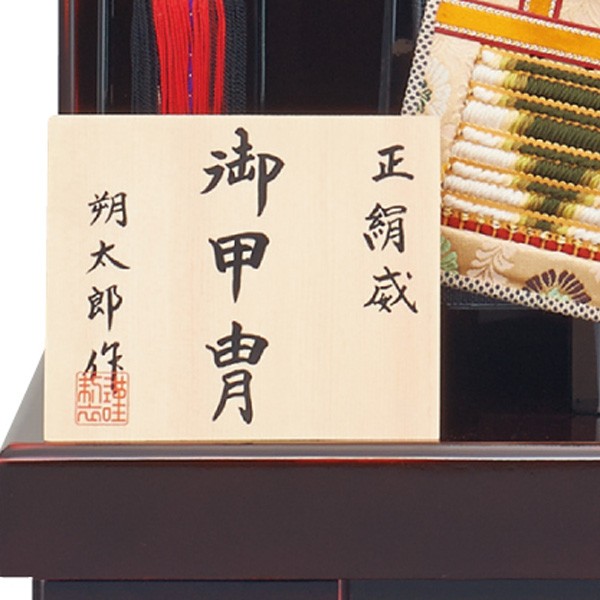 正絹威
御甲冑
朔太郎作